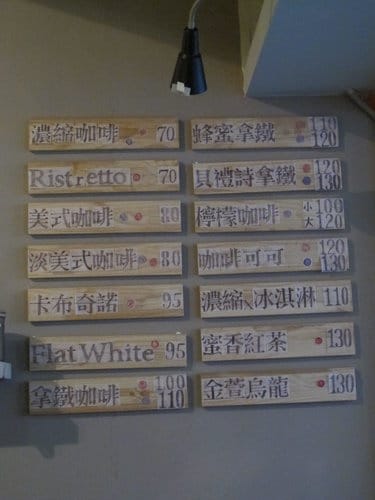 濃縮咖啡 70
Ristretto 70
美式咖啡 80
淡美式咖啡 80
卡布奇諾 95
Flat White 95
拿鐵咖啡 100 110
蜂蜜拿鐵 110 120
貝禮詩拿鐵 120 130
檸檬咖啡 小100 大120
咖啡可可 120 130
濃縮冰淇淋 110
蜜香紅茶 130
金萱烏龍 130